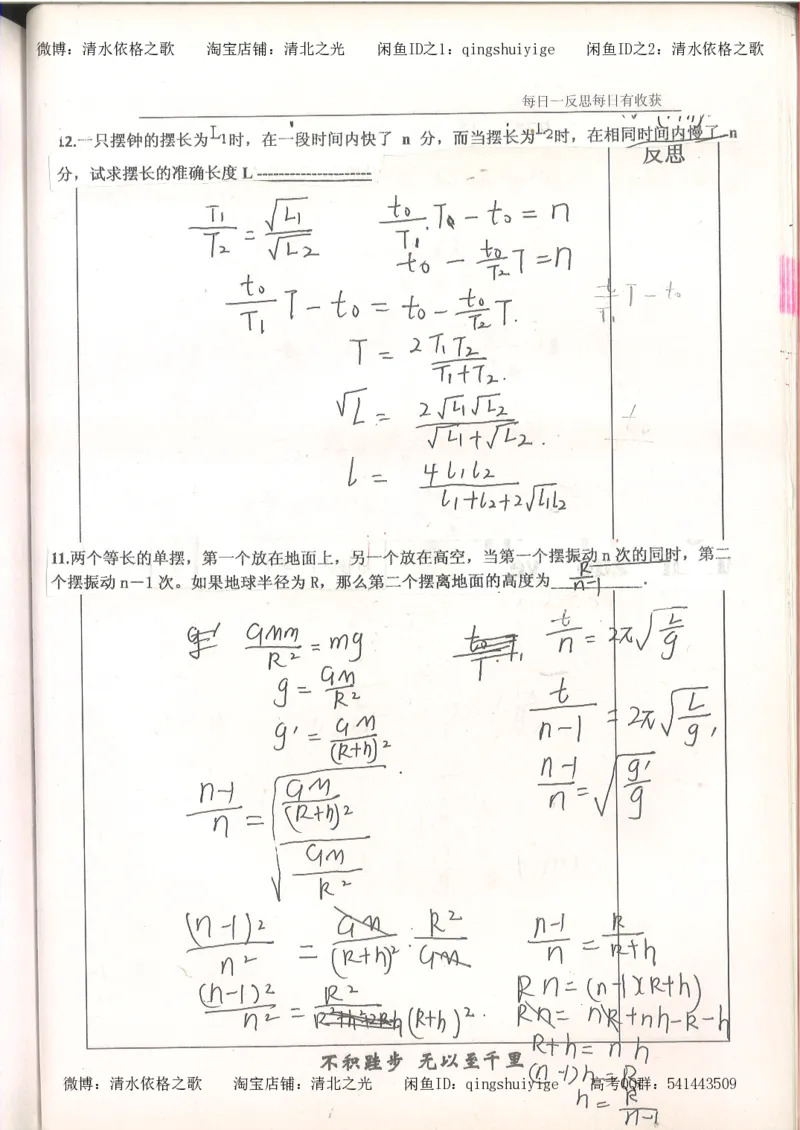 微博：清水依格之歌 淘宝店铺：清北之光 闲鱼ID之1：qingshuiyige 闲鱼ID之2：清水依格之歌
每日一反思每日有收获
12.一只摆钟的摆长为L1时，在一段时间内快了 n 分，而当摆长为L2时，在相同时间内慢了 n
分，试求摆长的准确长度 L ---------------------
反思
T1/T2 = √L1/√L2
t0/T1·T0 - t0 = n
t0 - t0/T2 T = n
t0/T1 T - t0 = t0 - t0/T2 T.
t/T1 T - t0
T = 2T1T2/T1+T2.
√L = 2√L1√L2/√L1+√L2.
l = 4l1l2/l1+l2+2√l1l2
11.两个等长的单摆，第一个放在地面上，另一个放在高空，当第一个摆振动 n 次的同时，第二
个摆振动 n－1 次。如果地球半径为 R，那么第二个摆离地面的高度为 R/n-1 .
GMm/R² = mg
t/n = 2π√L/g
g = GM/R²
t/n-1 = 2π√L/g'
g' = GM/(R+h)²
n-1/n = √g'/g
n-1/n = √GM/(R+h)²/√GM/R²
(n-1)²/n² = GM/(R+h)² · R²/GM
n-1/n = R/R+h
(n-1)²/n² = R²/(R+h)².
Rn = (n-1)(R+h)
Rn = nR+nh-R-h
R+h = nh
(n-1)h = R
h = R/n-1
不积跬步 无以至千里
微博：清水依格之歌 淘宝店铺：清北之光 闲鱼ID：qingshuiyige 高考QQ群：541443509